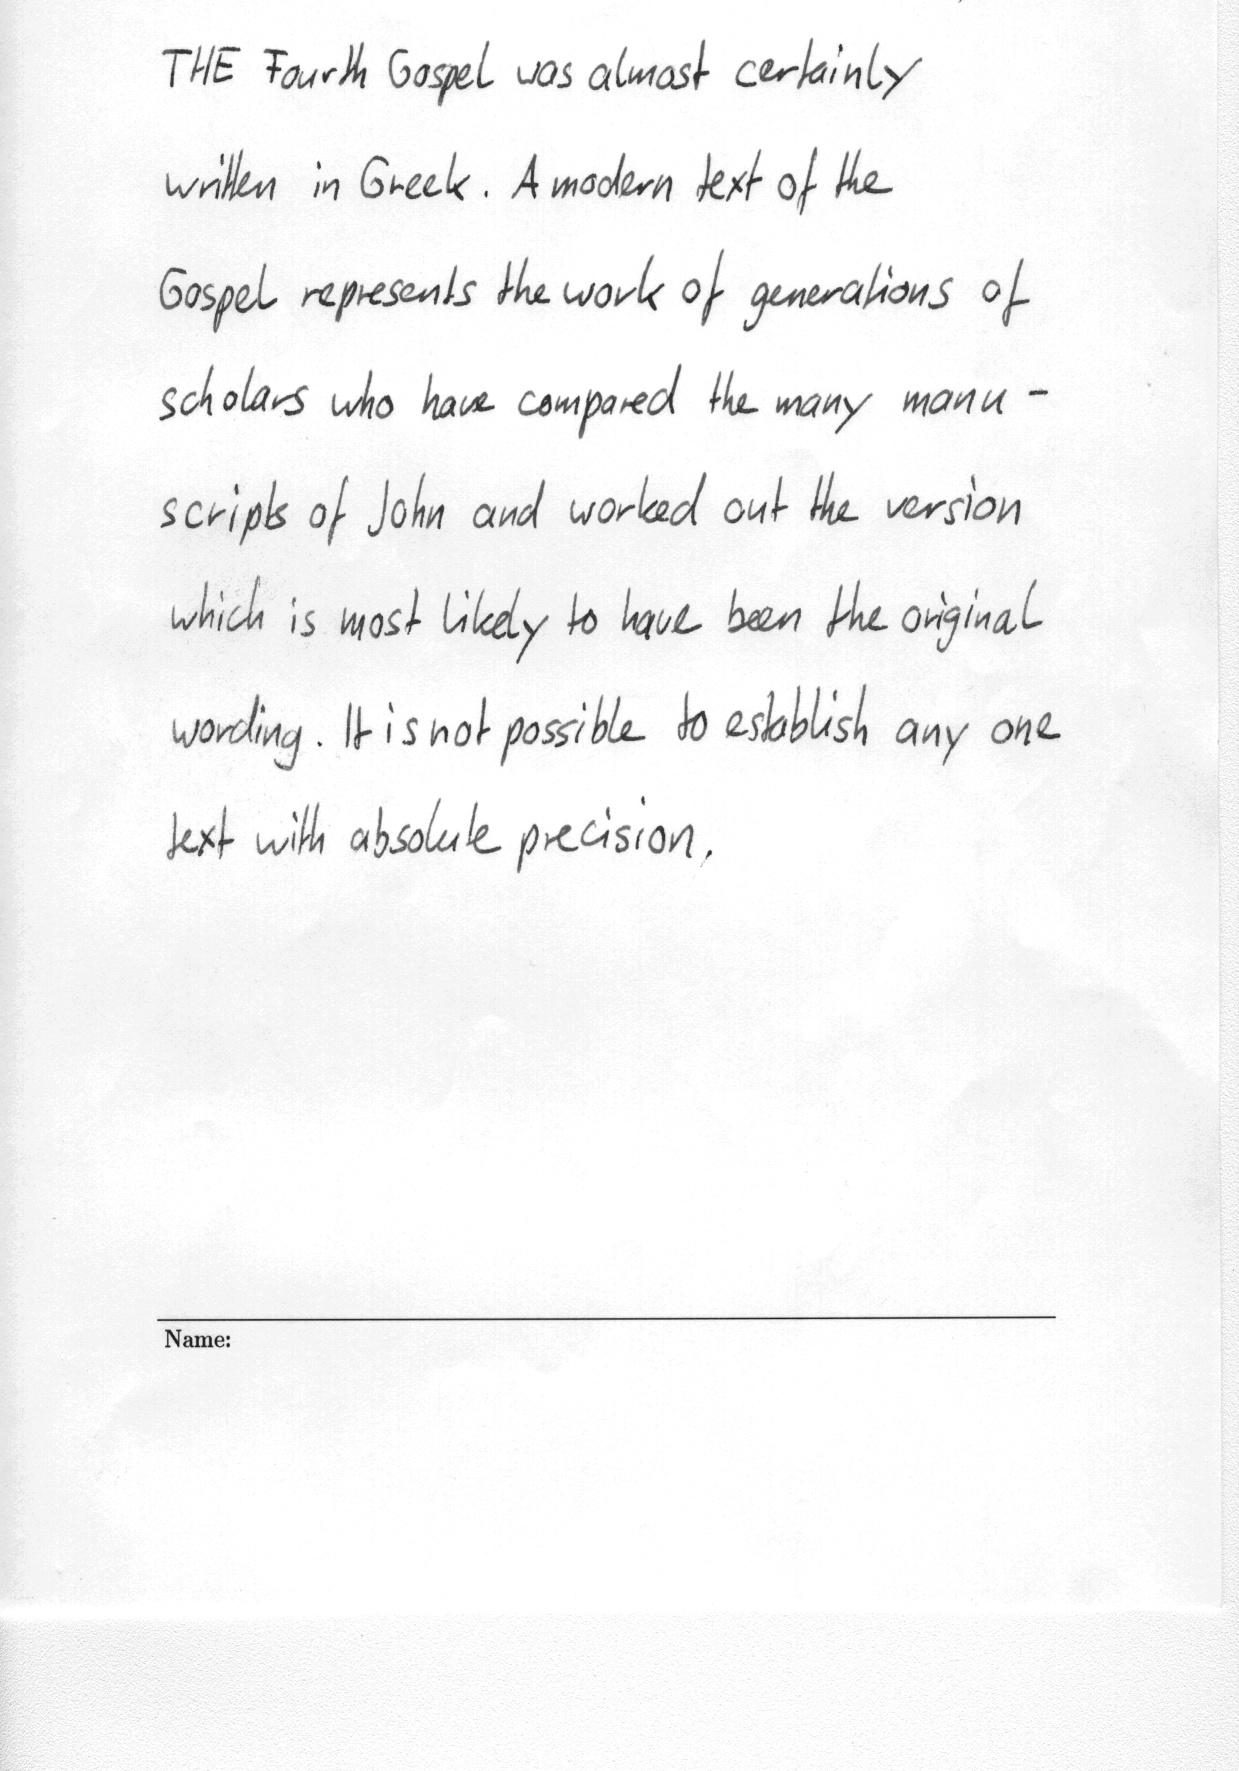 THE Fourth Gospel was almost certainly
written in Greek. A modern text of the
Gospel represents the work of generations of
scholars who have compared the many manu-
scripts of John and worked out the version
which is most likely to have been the original
wording. It is not possible to establish any one
text with absolute precision.
Name: